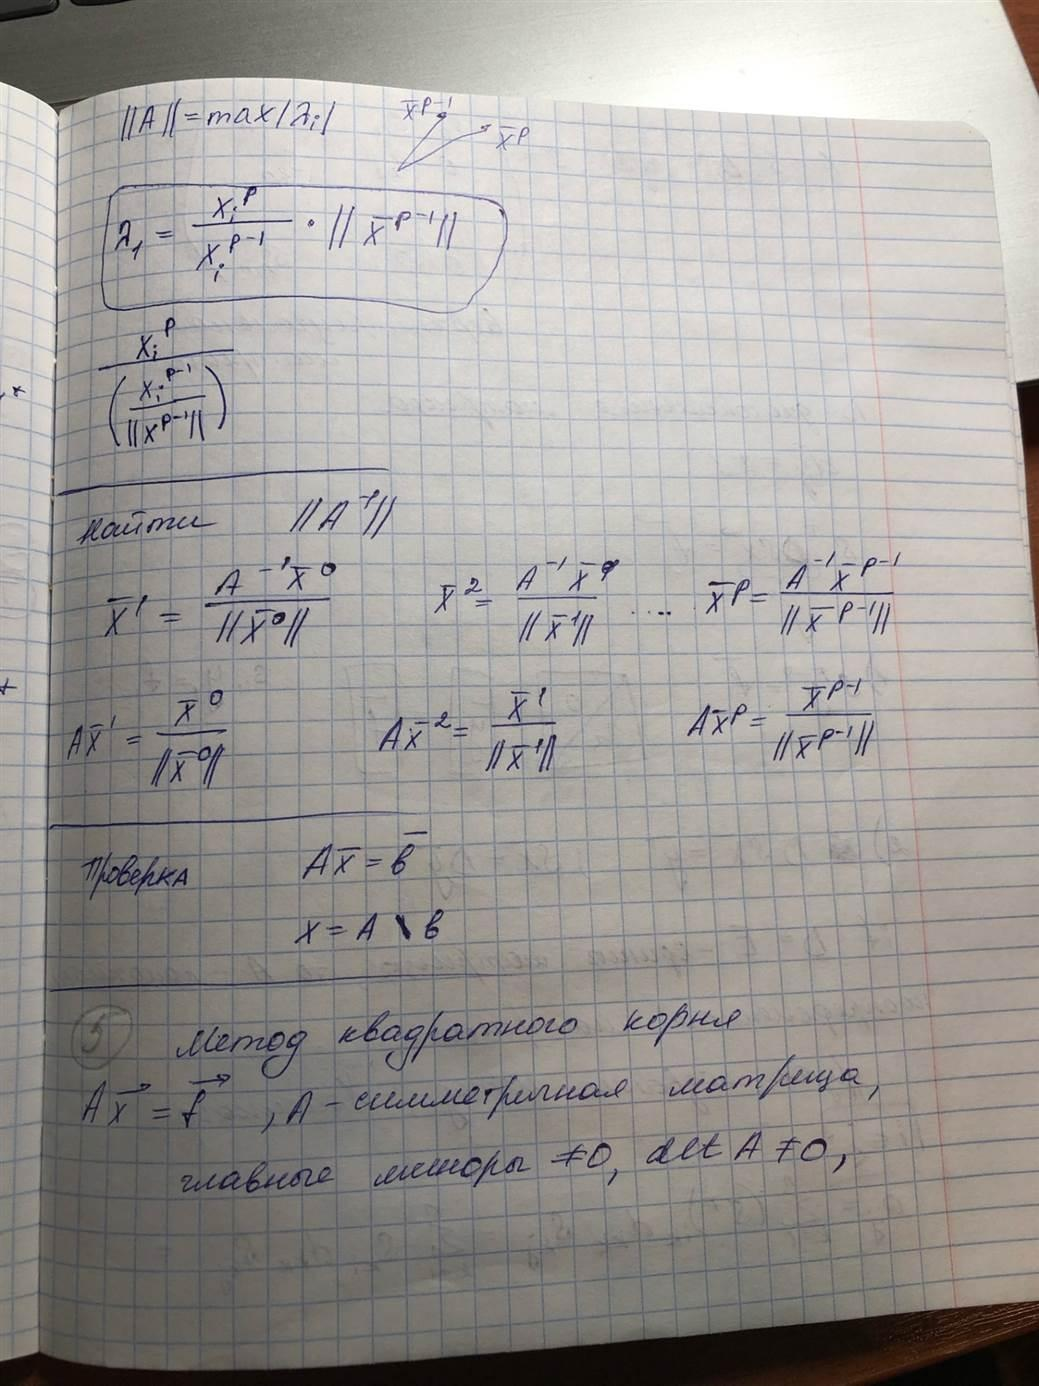 ||A|| = max|λi|   x̄^p-1   x̄^p
λ1 = xi^p / xi^p-1 · ||x̄^p-1||
xi^p / (xi^p-1 / ||x^p-1||)
Найти   ||A^-1||
x̄^1 = A^-1 x̄^0 / ||x̄^0||   x̄^2 = A^-1 x̄^1 / ||x̄^1|| .... x̄^p = A^-1 x̄^p-1 / ||x̄^p-1||
Ax̄^1 = x̄^0 / ||x̄^0||   Ax̄^2 = x̄^1 / ||x̄^1||   Ax̄^p = x̄^p-1 / ||x̄^p-1||
Проверка   Ax̄ = b̄
x = A \ b
5 Метод квадратного корня
Ax⃗ = f⃗, A - симметричная матрица,
главные миноры ≠0, det A ≠0,